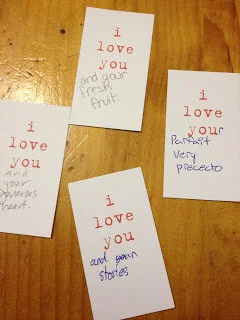 i
love
you
and your
fresh
fruit.
i
love
your
Parfait
very
prececto
i
love
you
and
your
generous
heart.
i
love
you
and your
stories